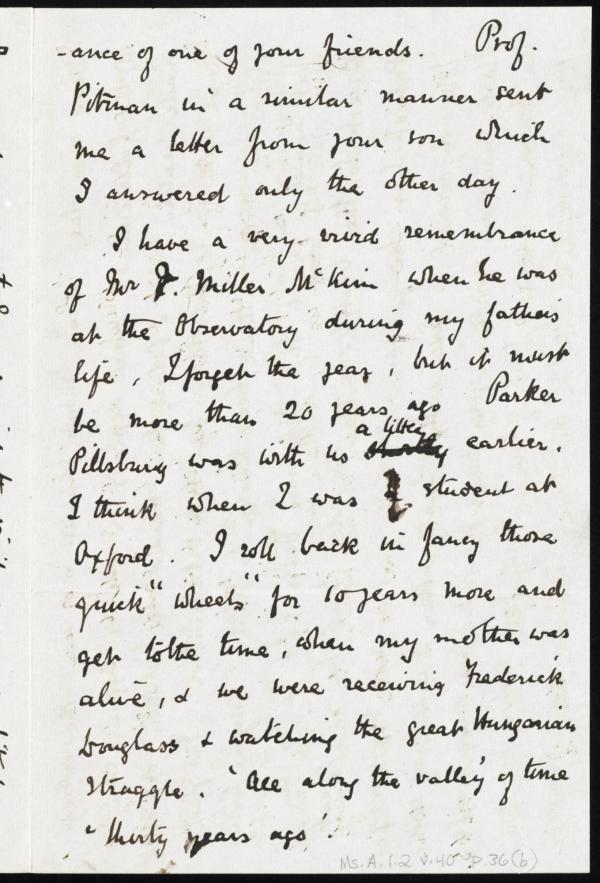 -ance of one of your friends. Prof.
Pitman in a similar manner sent
me a letter from your son which
I answered only the other day.
I have a very vivid remembrance
of Mr J. Miller McKim when he was
at the Observatory during my father's
life, I forget the year, but it must
be more than 20 years ago Parker
a little
Pillsbury was with us shortly earlier.
I think when I was a student at
Oxford. I roll back in fancy those
quick "wheels" for 10 years more and
get to the time, when my mother was
alive, & we were receiving Frederick
Douglass & watching the great Hungarian
struggle. 'All along the valley' of time
'thirty years ago'.
Ms. A. 1. 2 v. 40 p. 36 (b)